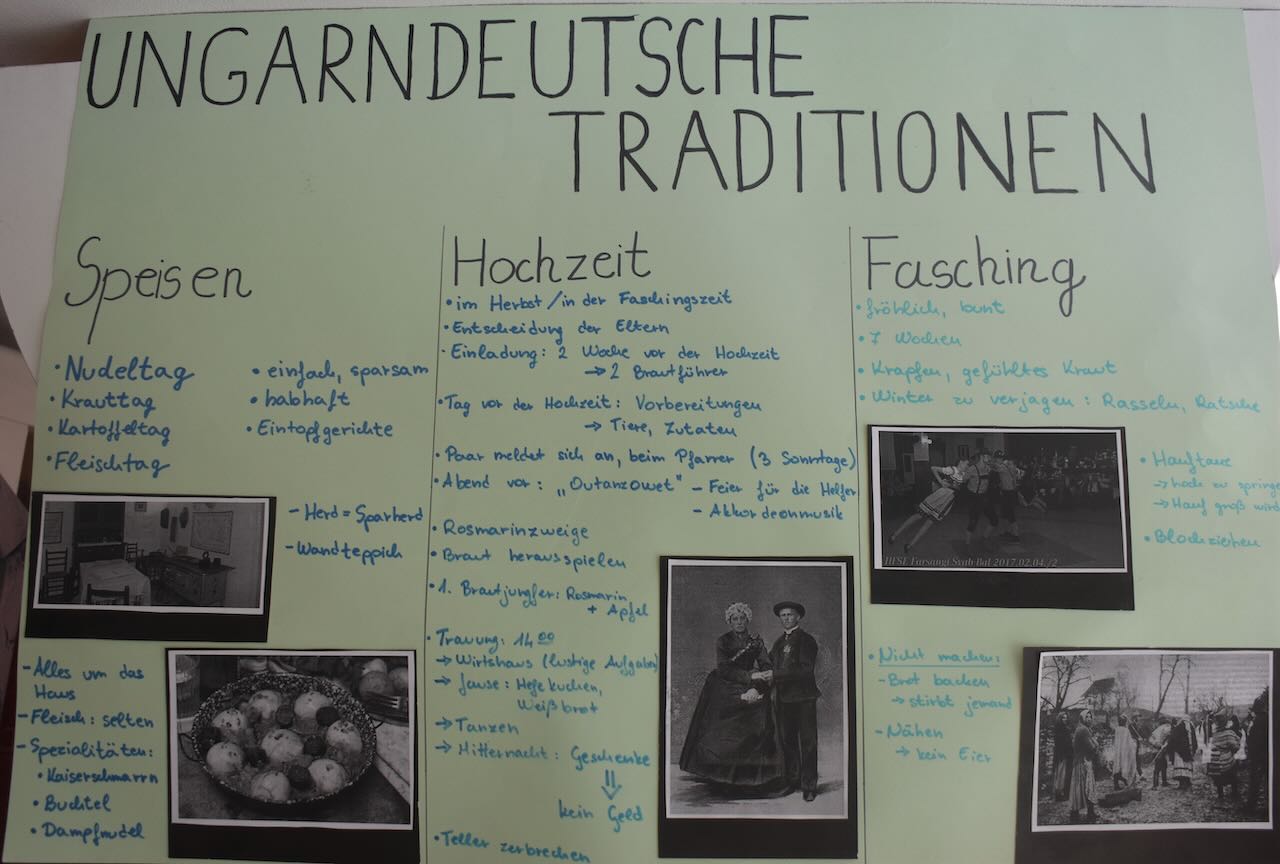 UNGARNDEUTSCHE
TRADITIONEN
Speisen
• Nudeltag
• Krauttag
• Kartoffeltag
• Fleischtag
• einfach, sparsam
• habhaft
• Eintopfgerichte
- Herd = Sparherd
- Wandteppich
- Alles um das
Haus
- Fleisch: selten
- Spezialitäten:
• Kaiserschmarrn
• Buchtel
• Dampfnudel
Hochzeit
• im Herbst / in der Faschingszeit
• Entscheidung der Eltern
• Einladung: 2 Woche vor der Hochzeit
→ 2 Brautführer
• Tag vor der Hochzeit: Vorbereitungen
→ Tiere, Zutaten
• Paar meldet sich an, beim Pfarrer (3 Sonntage)
• Abend vor: „Outanzowet" - Feier für die Helfer
- Akkordeonmusik
• Rosmarinzweige
• Braut herausspielen
• 1. Brautjungfer: Rosmarin
+ Apfel
• Trauung: 14 00
→ Wirtshaus (lustige Aufgaben)
→ Jause: Hefekuchen,
Weißbrot
→ Tanzen
→ Mitternacht: Geschenke
⇓
kein Geld
• Teller zerbrechen
Fasching
• fröhlich, bunt
• 7 Wochen
• Krapfen, gefühltes Kraut
• Winter zu verjagen: Rasseln, Ratsche
IHFSE Farsangi Sváb Bál 2017.02.04./2
• Hanftanz
→ hoch zu springen
→ Hanf groß wird
• Blochziehen
• Nicht machen:
- Brot backen
→ stirbt jemand
- Nähen
→ kein Eier